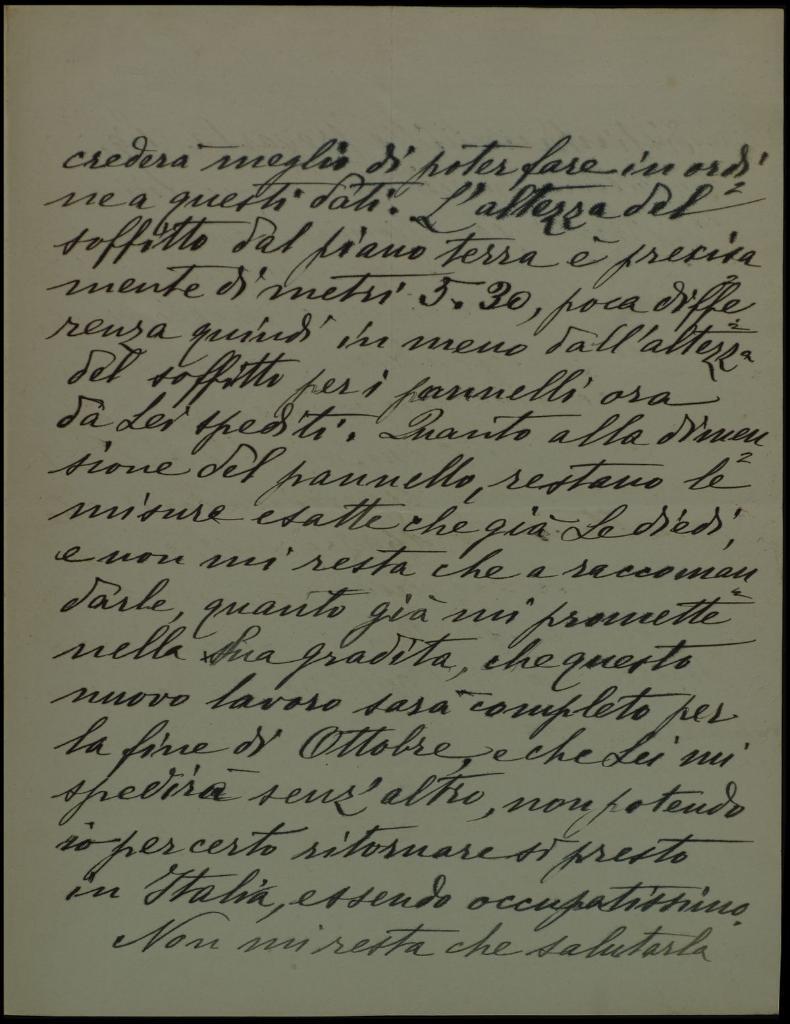 crederà meglio di poter fare in ordi=
ne a questi dati. L'altezza del
soffitto dal piano terra è precisa
mente di metri 5.30, poca diffe=
renza quindi in meno dall'altezza
del soffitto per i pannelli ora
da Lei spediti. Quanto alla dimen=
sione del pannello, restano le
misure esatte che già Le diedi,
e non mi resta che a raccoman=
darle, quanto già mi promette
nella Sua gradita, che questo
nuovo lavoro sarà completo per
la fine di Ottobre, e che Lei mi
spedirà senz'altro, non potendo
io per certo ritornare sì presto
in Italia, essendo occupatissimo.
Non mi resta che salutarla